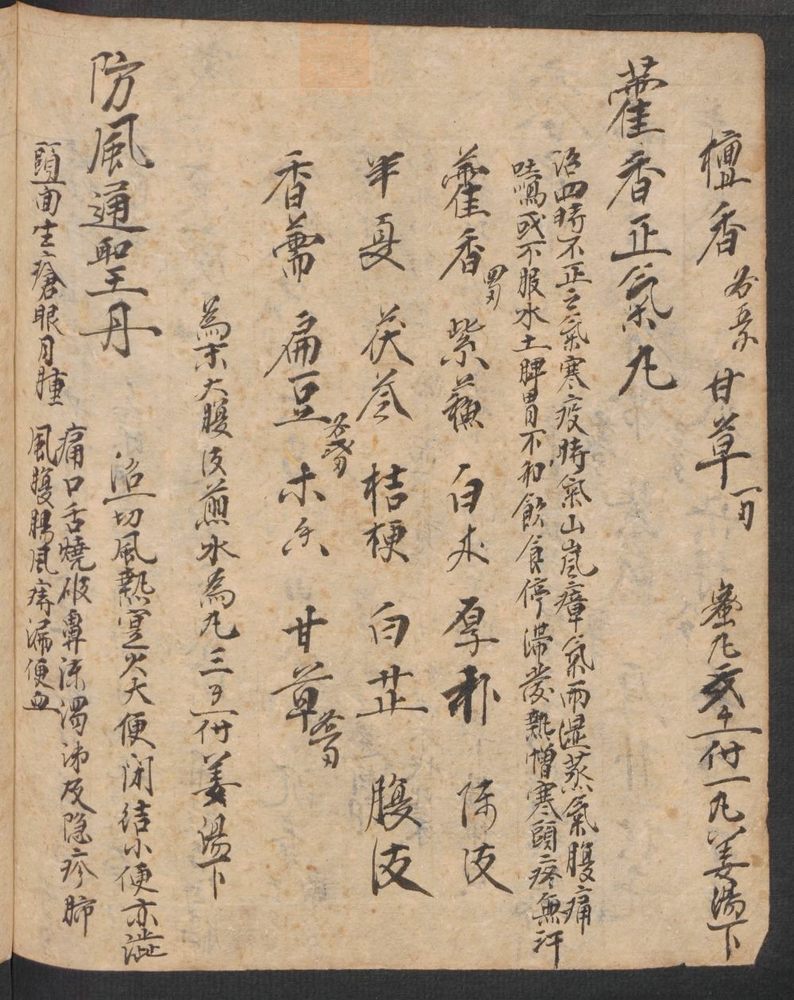 檀香 各五分 甘草 一両 蜜丸 重一付一丸姜湯下
藿香正氣丸
治四時不正之氣寒疫時氣山嵐瘴氣雨湿蒸氣腹痛
吐瀉或不服水土脾胃不和飲食停滞發熱憎寒頭疼無汗
藿香 四両 紫蘓 白朮 厚朴 陳皮
半夏 茯苓 桔梗 白芷 腹皮
香薷 扁豆 木香 甘草
為末大腹皮煎水為丸三 付姜湯下
防風通聖丹
治一切風熱実火大便闭结小便赤澁
頭面生瘡眼目腫痛口舌燒破鼻流濁涕及隐疹肺
風腹腸風痔漏便血